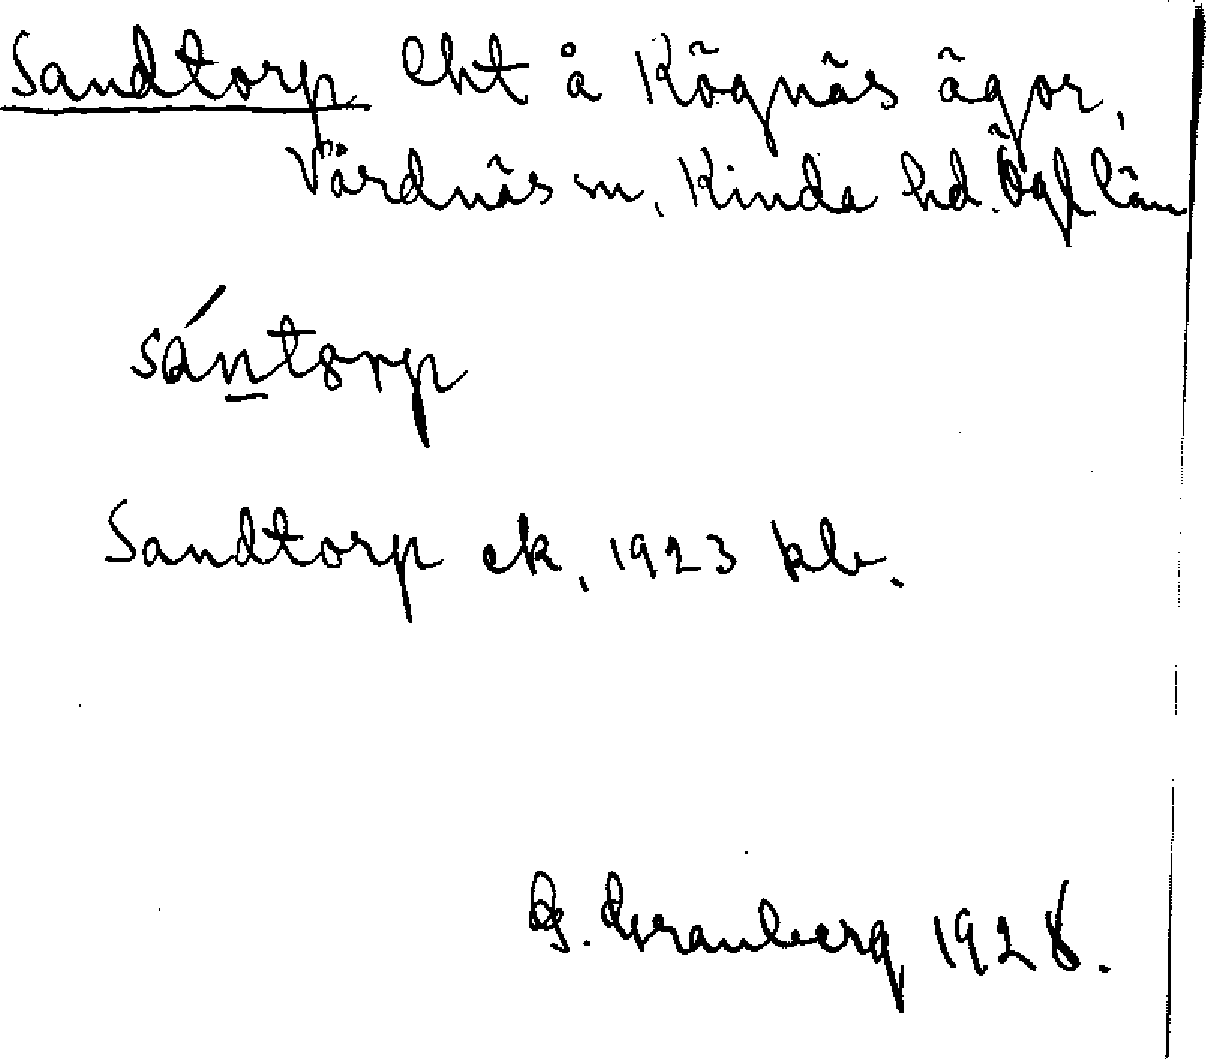 Sandtorp lht å Kögnäs ägor,
Vårdnäs sn, Kinda hd. Ögl län
sántorp
Sandtorp ek, 1923 kb.
G. Granberg 1928.